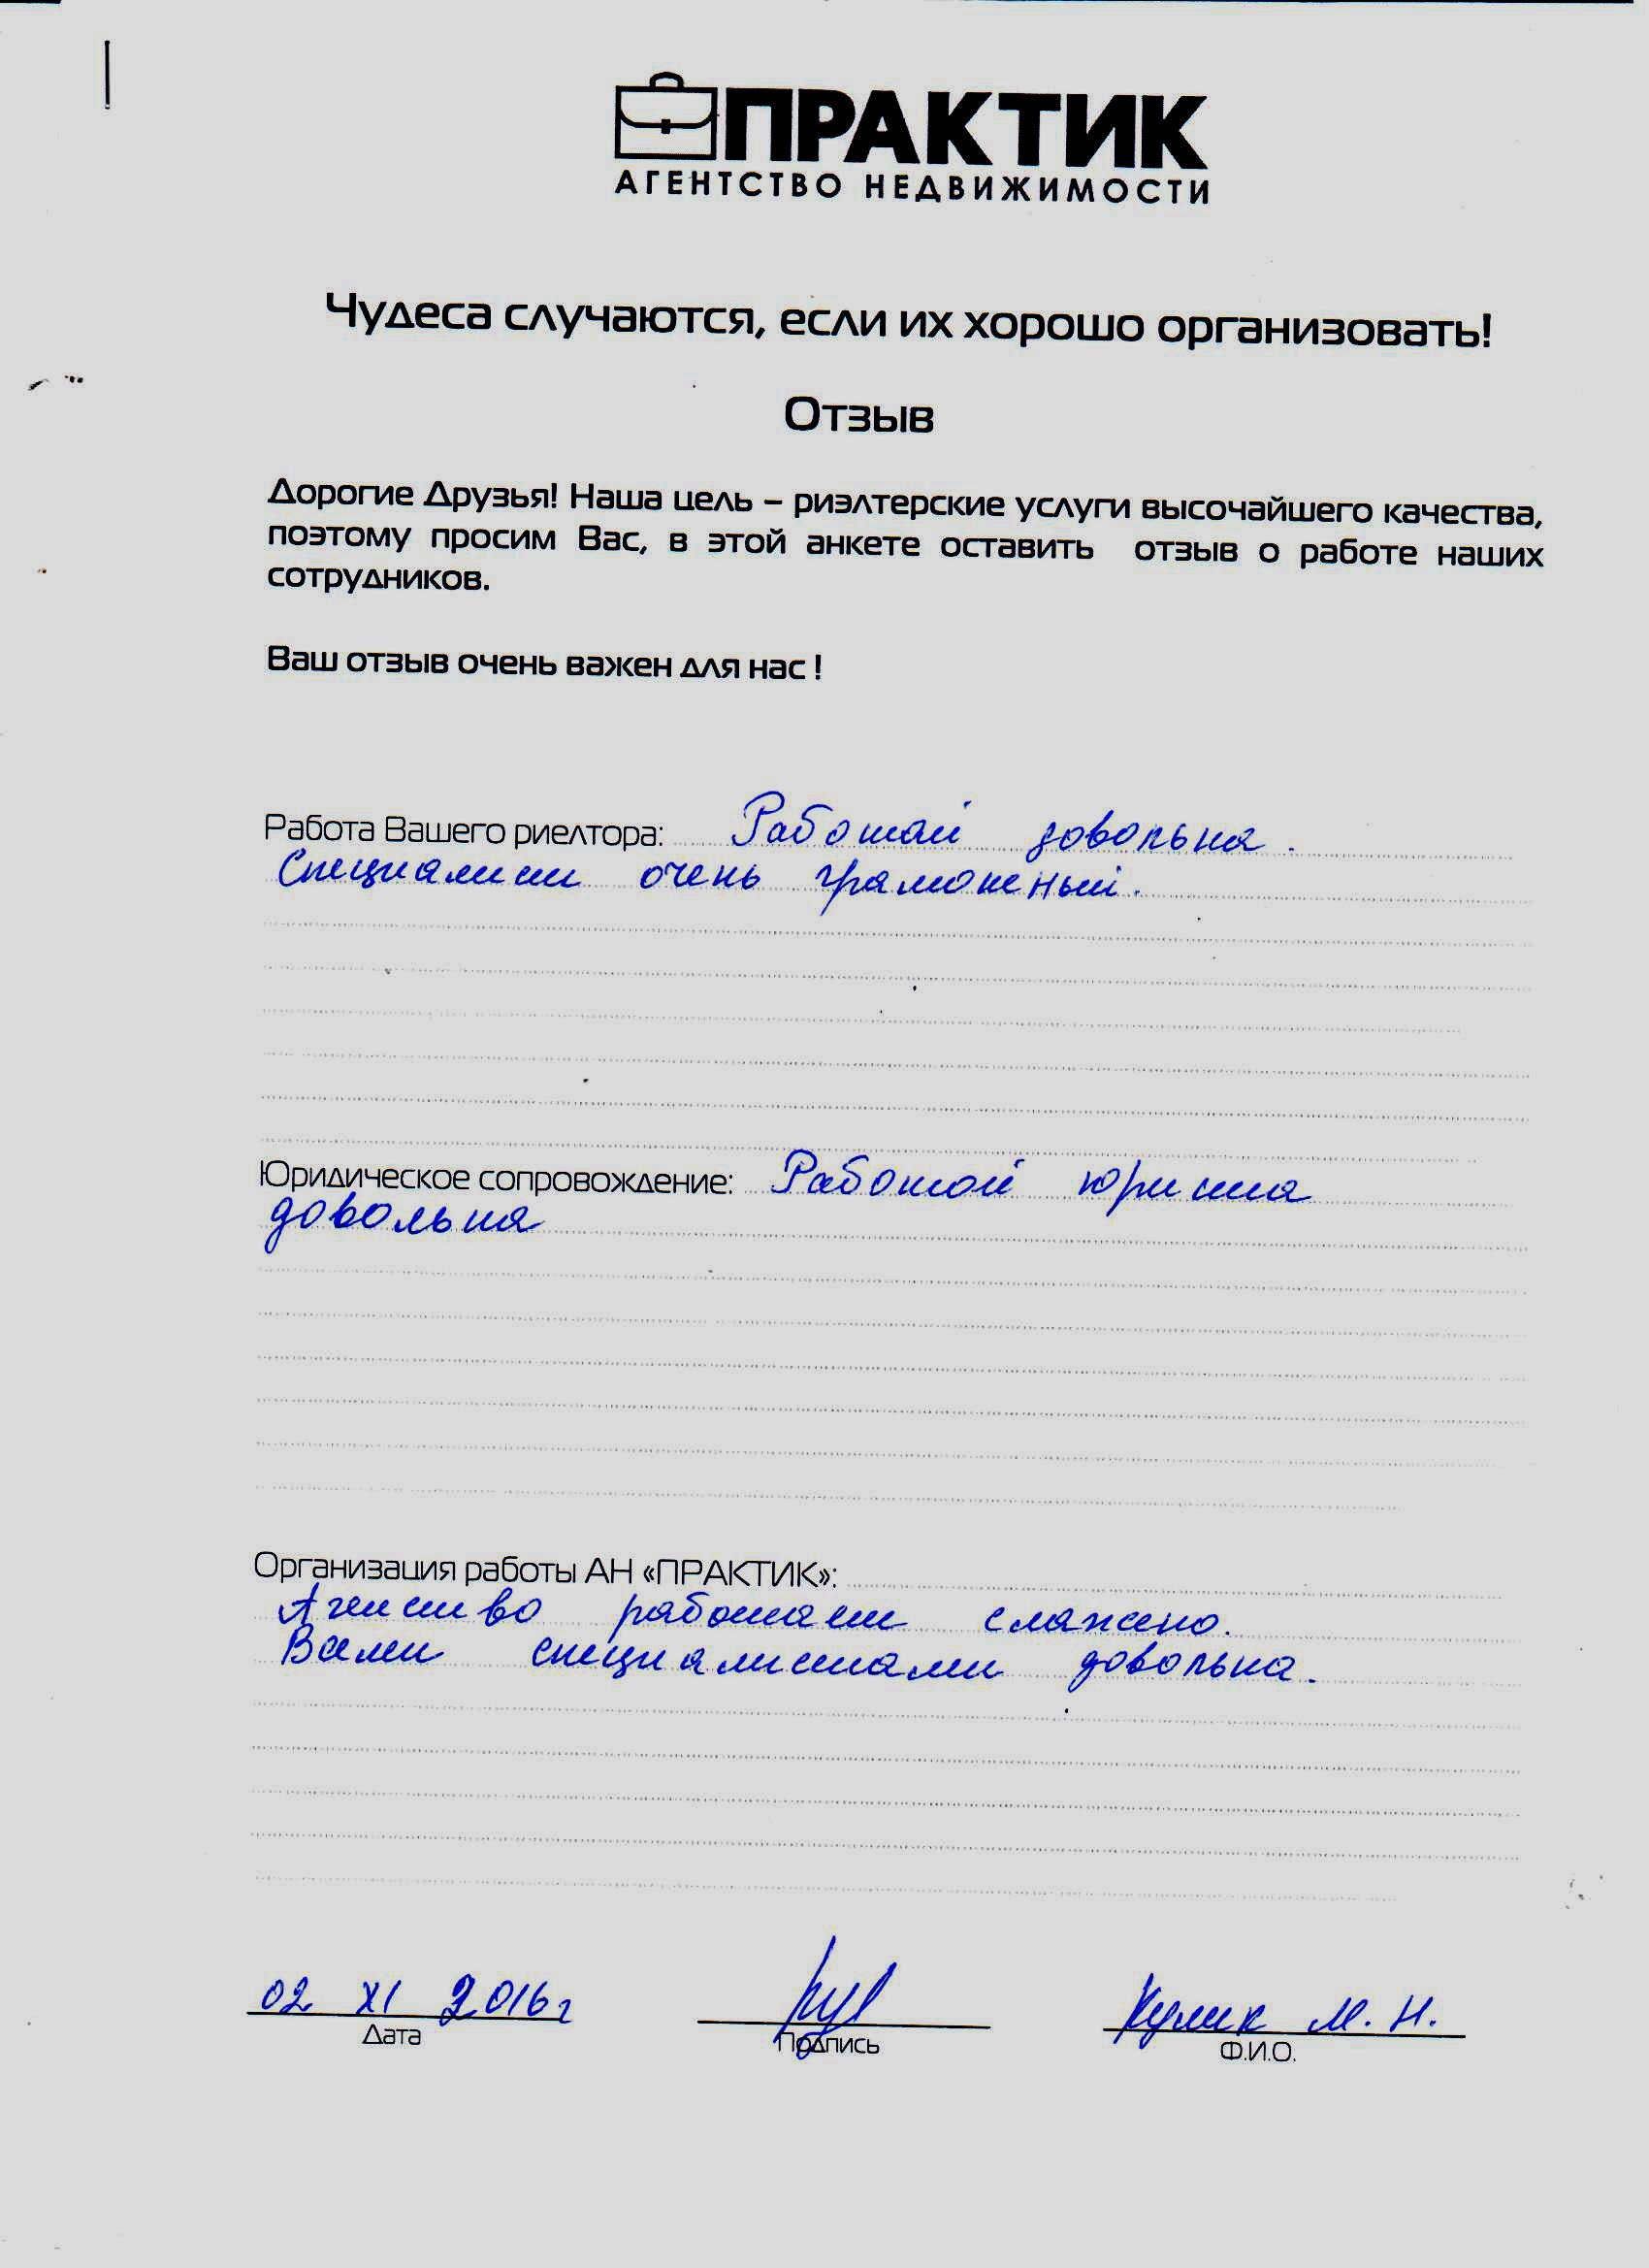 ПРАКТИК
АГЕНТСТВО НЕДВИЖИМОСТИ
Чудеса случаются, если их хорошо организовать!
Отзыв
Дорогие Друзья! Наша цель – риэлтерские услуги высочайшего качества,
поэтому просим Вас, в этой анкете оставить отзыв о работе наших
сотрудников.
Ваш отзыв очень важен для нас !
Работа Вашего риелтора: Работой довольна.
Специалист очень грамотный.
Юридическое сопровождение: Работой юриста
довольна
Организация работы АН «ПРАКТИК»:
Агенство работает слажено.
Всеми специалистами довольна.
02 XI 2016г
Дата
Подпись
Кулик М. Н.
Ф.И.О.